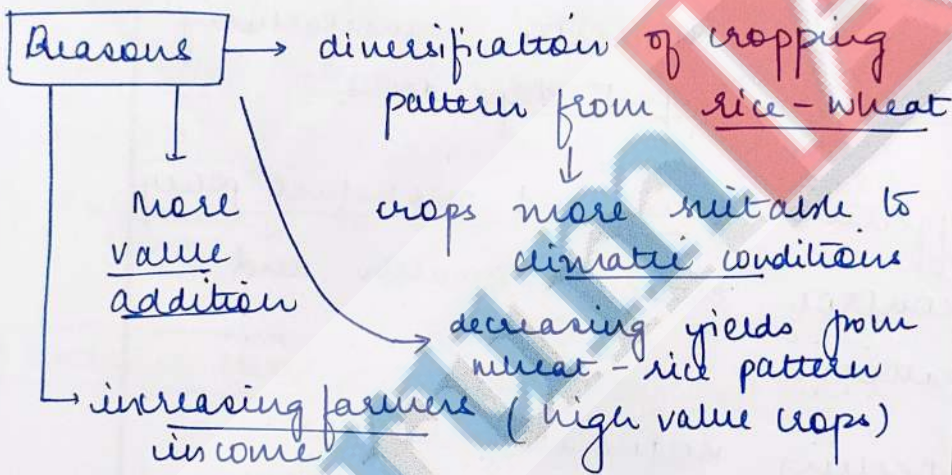 Reasons → diversification of cropping
pattern from rice - wheat
↓
crops more suitable to
climatic conditions
More
value
addition
decreasing yields from
wheat - rice pattern
increasing farmers (high value crops)
income
rum